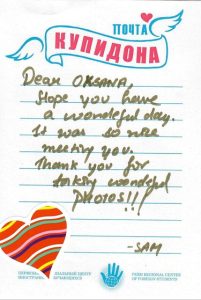 ПОЧТА
КУПИДОНА
Dear OKSANA,
Hope you have
a wonderful day.
It was so nice
meeting you.
Thank you for
taking wonderful
PHOTOS!!!
-SAM
PERM REGIONAL CENTER
OF FOREIGN STUDENTS